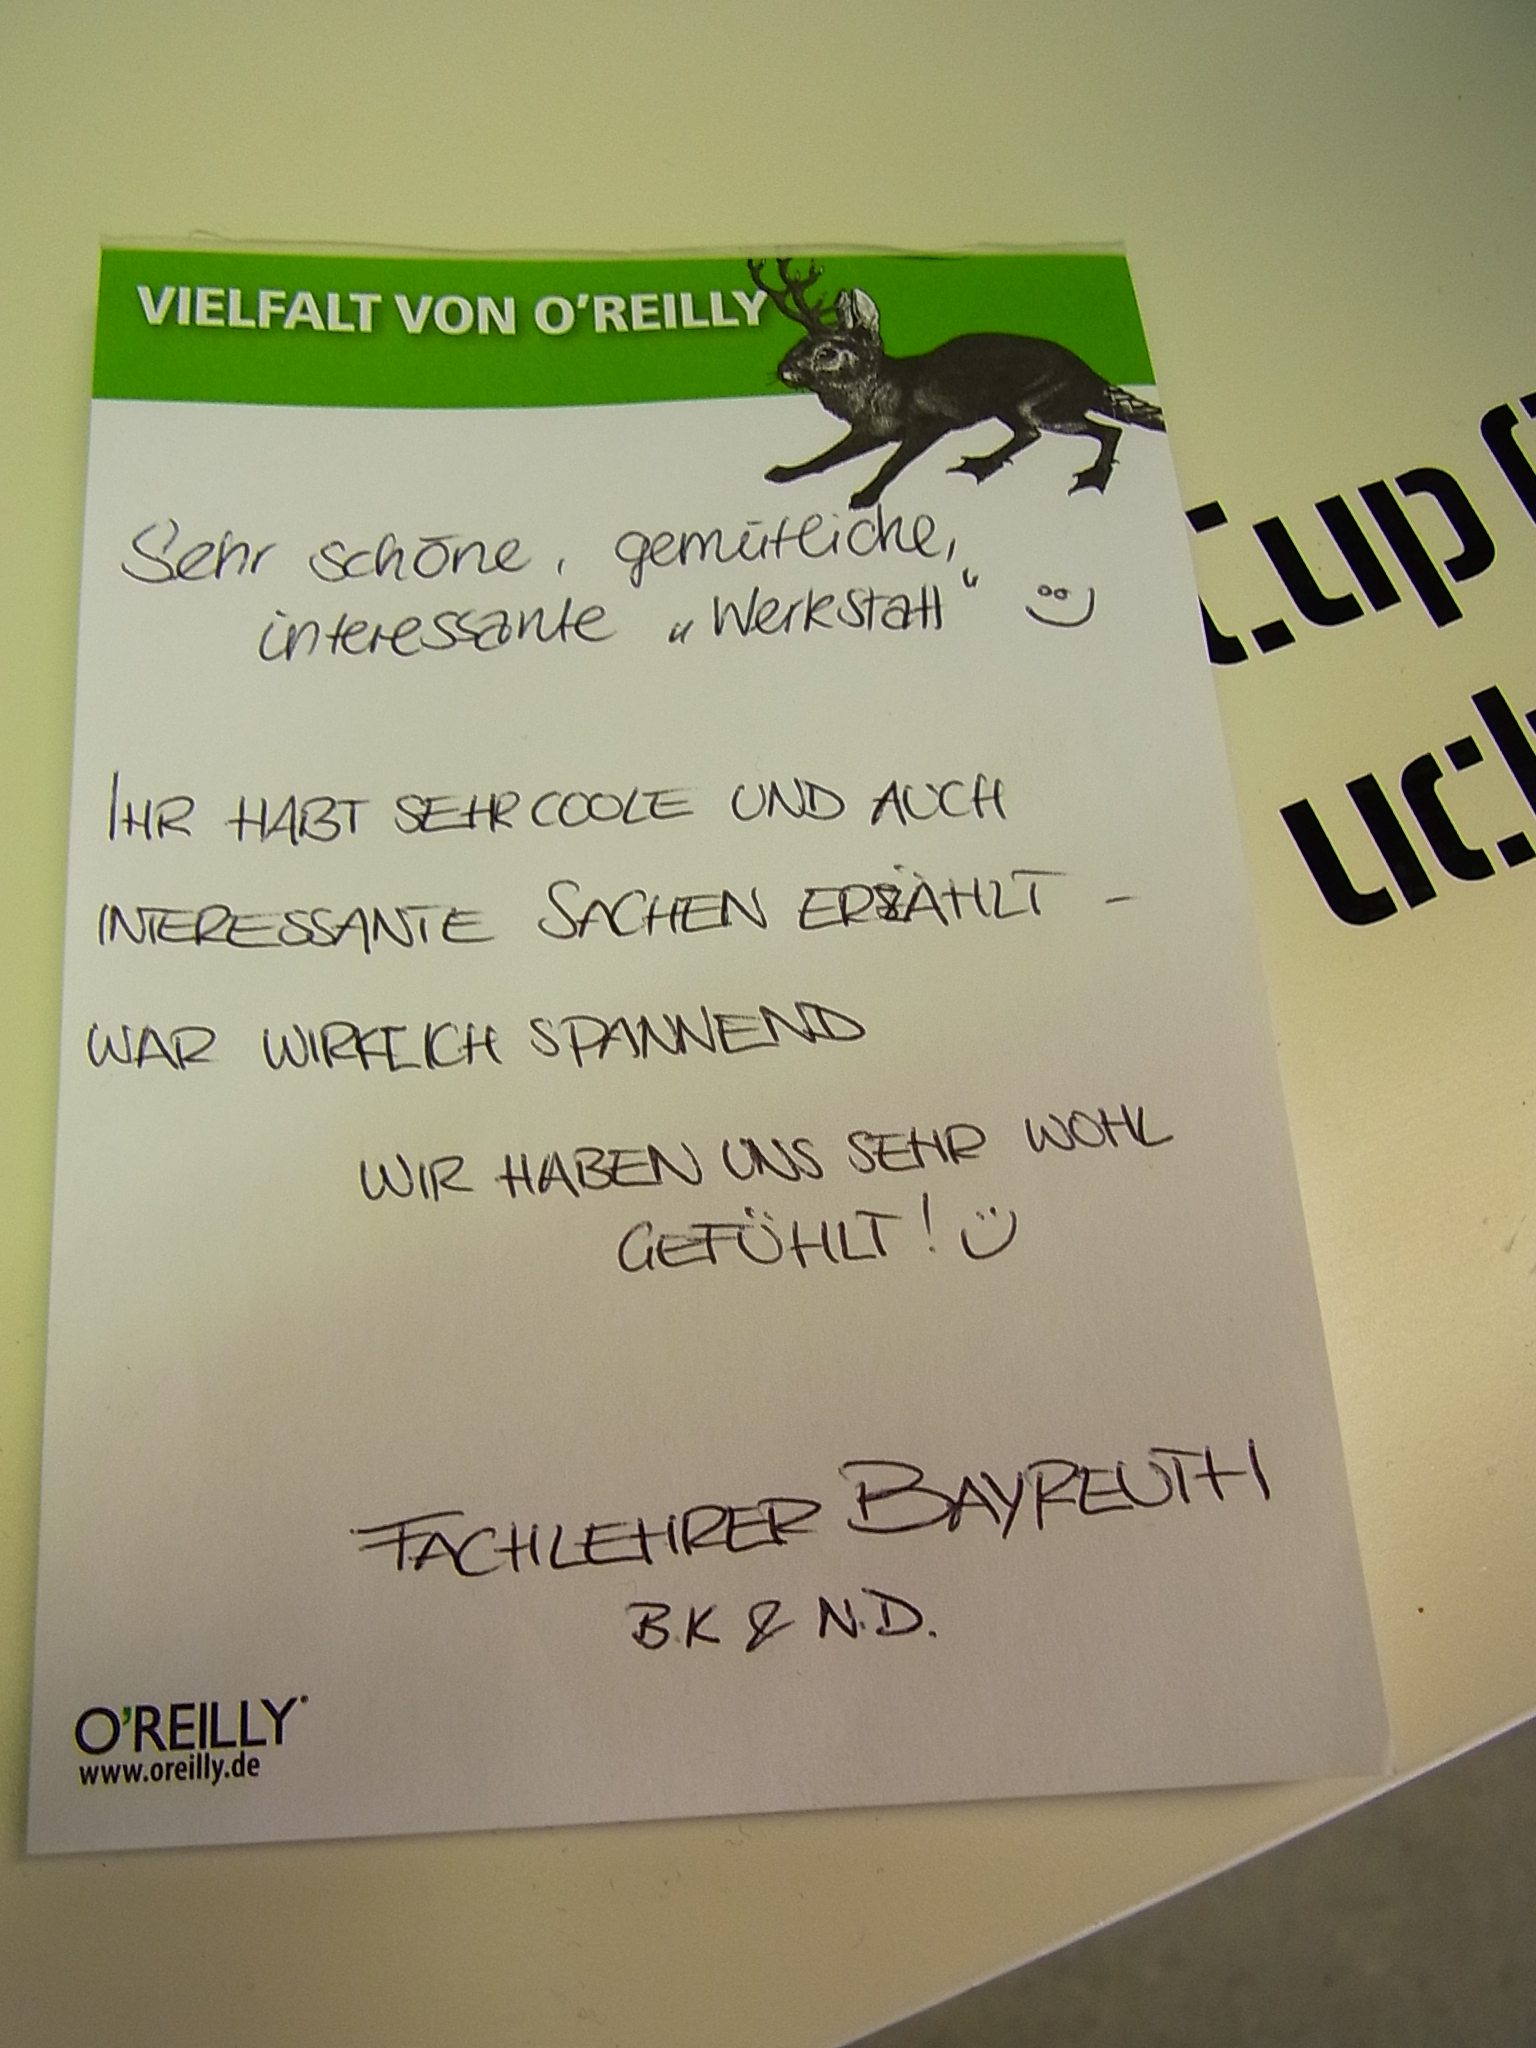 VIELFALT VON O'REILLY
Sehr schöne, gemütliche,
interessante „Werkstatt“ :)
IHR HABT SEHR COOLE UND AUCH
INTERESSANTE SACHEN ERZÄHLT -
WAR WIRKLICH SPANNEND
WIR HABEN UNS SEHR WOHL
GEFÜHLT! :)
FACHLEHRER BAYREUTH
B.K & N.D.
O'REILLY
www.oreilly.de